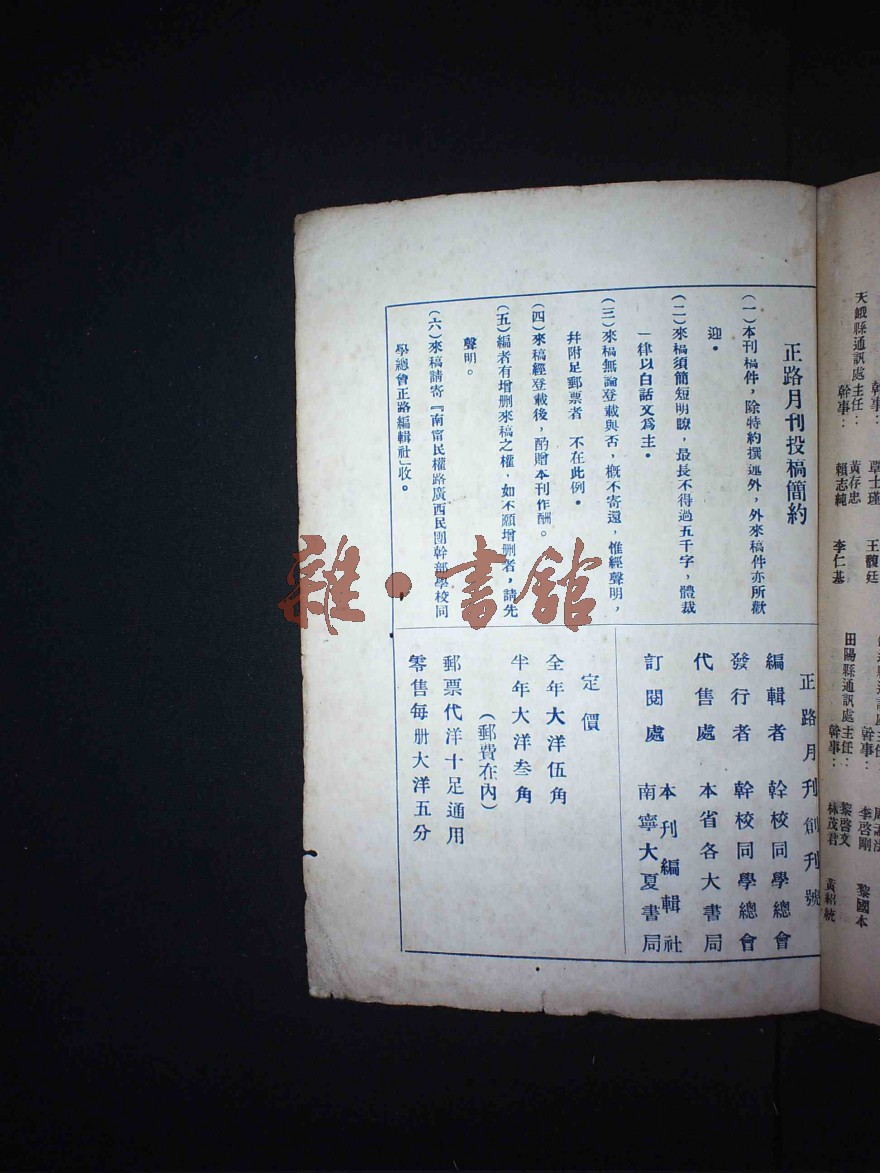 正路月刊投稿簡約
(一)本刊稿件，除特約撰述外，外來稿件亦所歡
迎。
(二)來稿須簡短明瞭，最長不得過五千字，體裁
一律以白話文爲主。
(三)來稿無論登載與否，槪不寄還，惟經聲明，
幷附足郵票者　不在此例。
(四)來稿經登載後，酌贈本刊作酬。
(五)編者有增删來稿之權，如不願增删者，請先
聲明。
(六)來稿請寄『南甯民權路廣西民團幹部學校同
學總會正路編輯社』收。
正路月刊創刊號
編輯者　幹校同學總會
發行者　幹校同學總會
代售處　本省各大書局
訂閱處　本刊編輯社
南寧大夏書局
定價
全年大洋伍角
半年大洋叁角
(郵費在內)
郵票代洋十足通用
零售每册大洋五分
天峨縣通訊處主任：黃存忠
幹事：賴志純　李仁基
田陽縣通訊處主任：黎啓文
幹事：林茂君　黃紹統
幹事：覃士瑾　王馥廷
幹事：李啓剛　黎國本
雜·書館